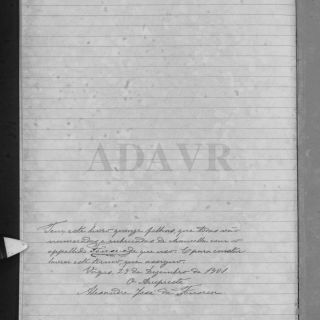 ADAVR
Tem este livro quinze folhas que todas vão
numeradas e rubricadas de chancella com o
appellido Fonseca de que uso. E para constar
lavrei este termo que assigno.
Vagos, 29 de Dezembro de 1901
O Arcipreste
Alexandre José da Fonseca